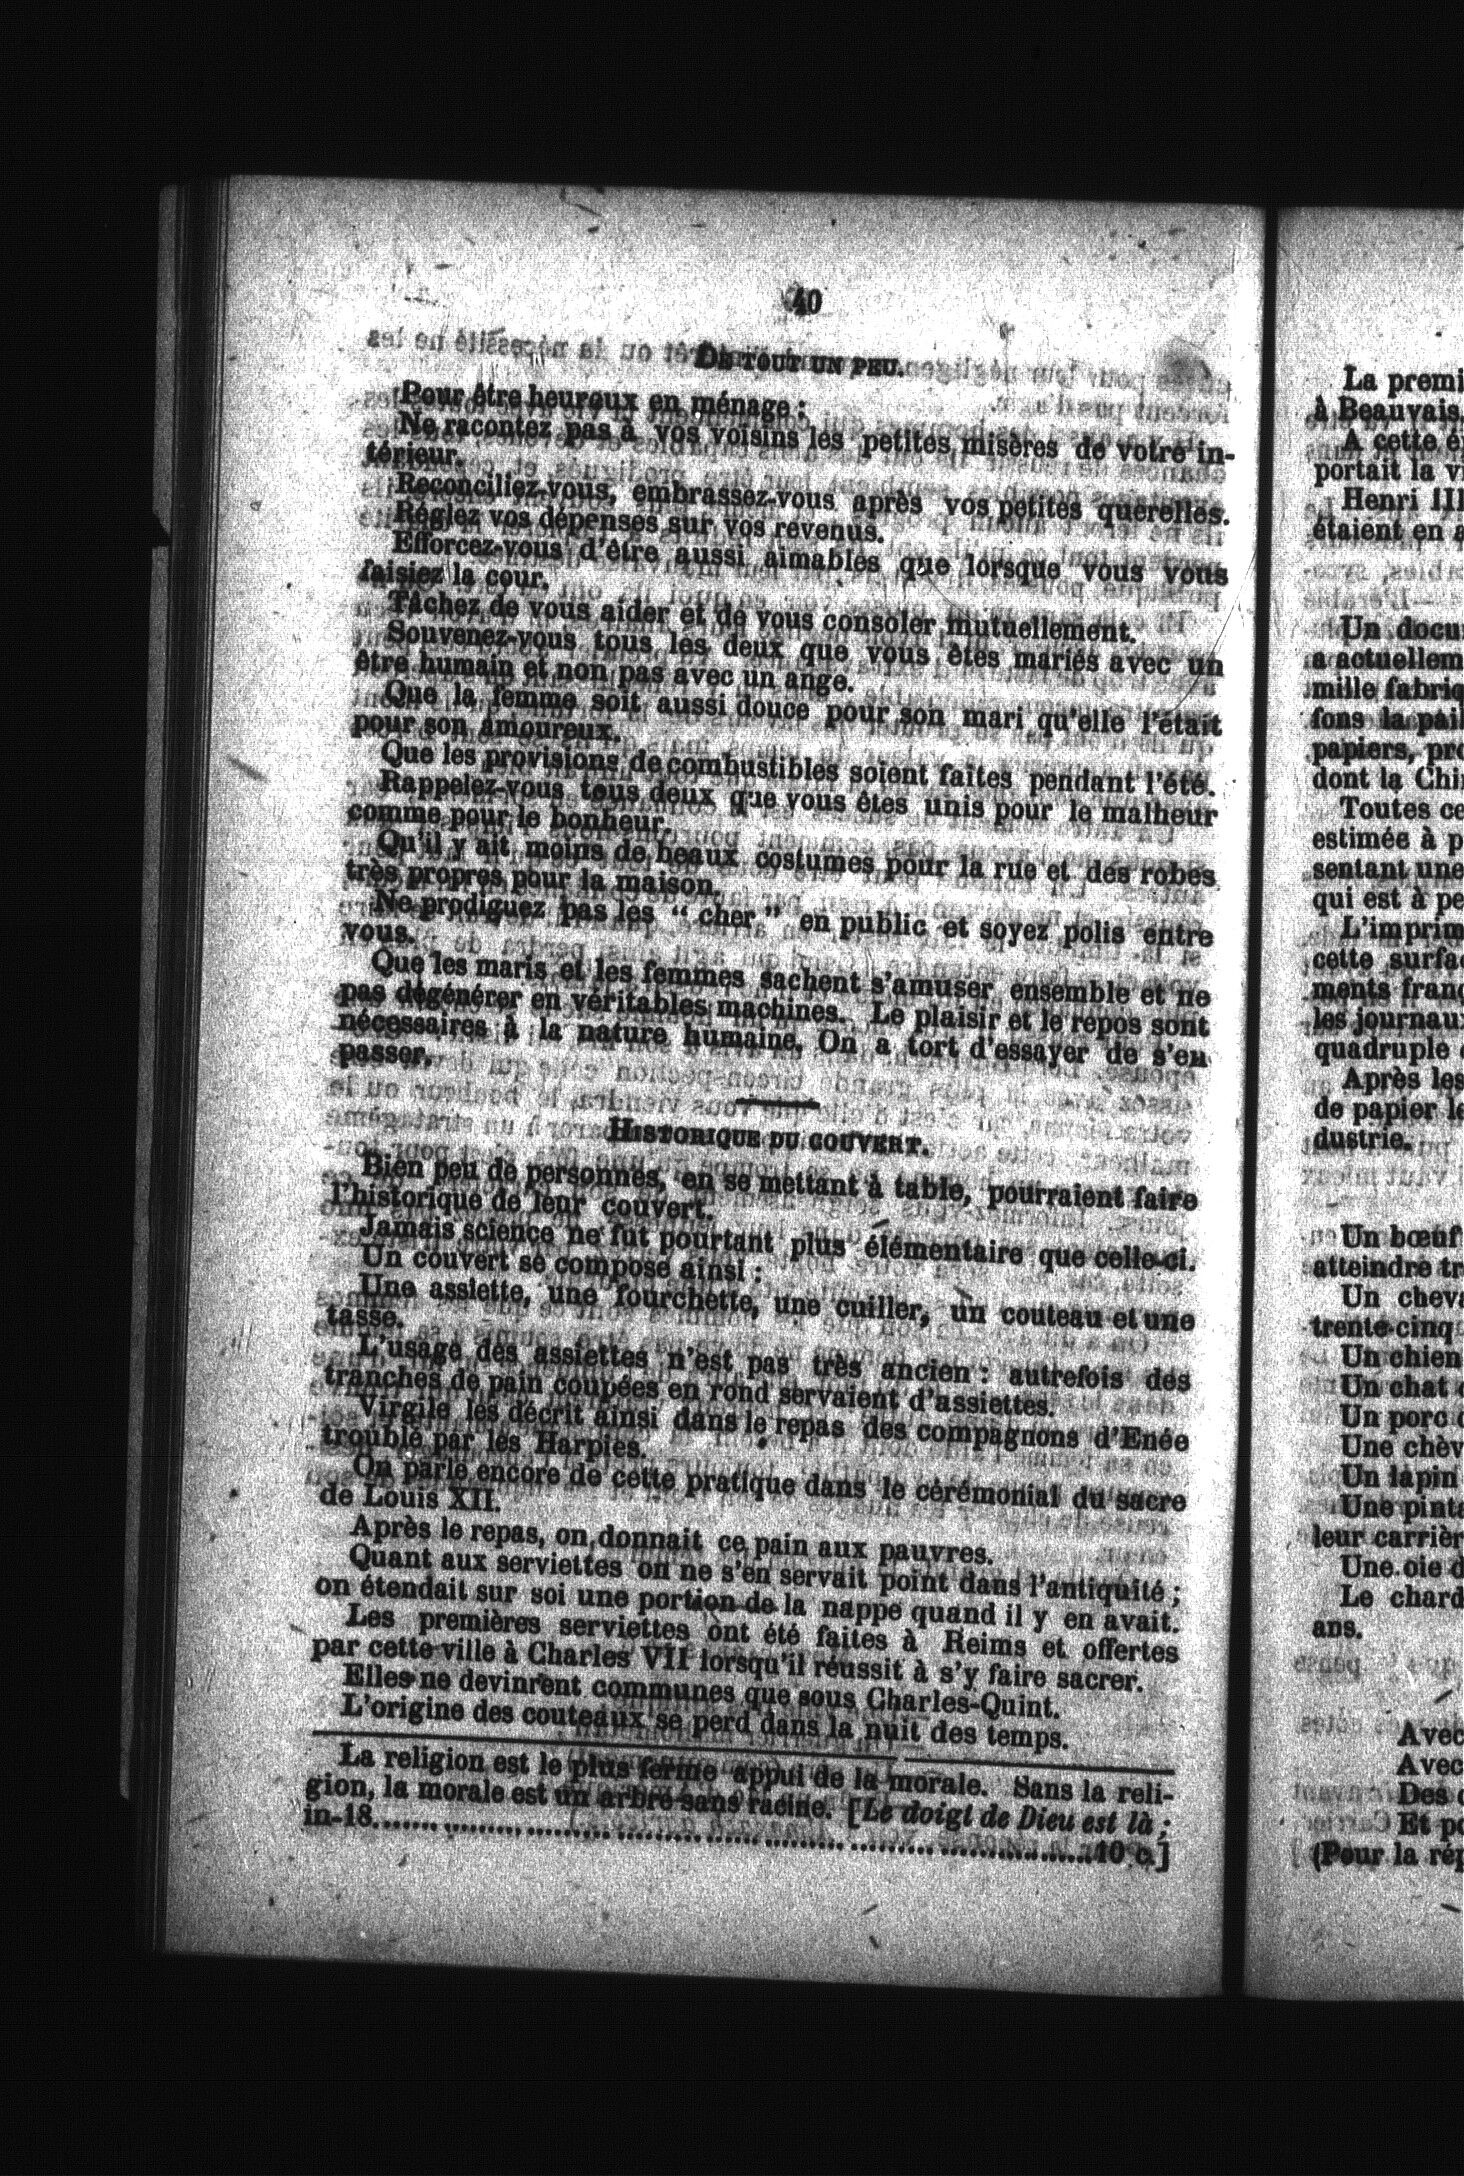 40
DE TOUT UN PEU.
Pour être heureux en ménage :
Ne racontez pas à vos voisins les petites misères de votre in-
térieur.
Reconciliez-vous, embrassez-vous après vos petites querelles.
Réglez vos dépenses sur vos revenus.
Efforcez-vous d'être aussi aimables que lorsque vous vous
faisiez la cour.
Tâchez de vous aider et de vous consoler mutuellement.
Souvenez-vous tous les deux que vous êtes mariés avec un
être humain et non pas avec un ange.
Que la femme soit aussi douce pour son mari qu'elle l'était
pour son amoureux.
Que les provisions de combustibles soient faites pendant l'été.
Rappelez-vous tous deux que vous êtes unis pour le malheur
comme pour le bonheur.
Qu'il y ait moins de beaux costumes pour la rue et des robes
très propres pour la maison.
Ne prodiguez pas les “ cher ” en public et soyez polis entre
vous.
Que les maris et les femmes sachent s'amuser ensemble et ne
pas dégénérer en véritables machines. Le plaisir et le repos sont
nécessaires à la nature humaine. On a tort d'essayer de s'en
passer.
HISTORIQUE DU COUVERT.
Bien peu de personnes, en se mettant à table, pourraient faire
l'historique de leur couvert.
Jamais science ne fut pourtant plus élémentaire que celle-ci.
Un couvert se compose ainsi :
Une assiette, une fourchette, une cuiller, un couteau et une
tasse.
L'usage des assiettes n'est pas très ancien : autrefois des
tranches de pain coupées en rond servaient d'assiettes.
Virgile les décrit ainsi dans le repas des compagnons d'Enée
troublé par les Harpies.
On parle encore de cette pratique dans le cérémonial du sacre
de Louis XII.
Après le repas, on donnait ce pain aux pauvres.
Quant aux serviettes on ne s'en servait point dans l'antiquité ;
on étendait sur soi une portion de la nappe quand il y en avait.
Les premières serviettes ont été faites à Reims et offertes
par cette ville à Charles VII lorsqu'il réussit à s'y faire sacrer.
Elles ne devinrent communes que sous Charles-Quint.
L'origine des couteaux se perd dans la nuit des temps.
La religion est le plus ferme appui de la morale. Sans la reli-
gion, la morale est un arbre sans racine. [Le doigt de Dieu est là ;
in-18.......................................................10 c.]
La premi
à Beauvais.
A cette é
portait la v
Henri III
étaient en a
Un docu
a actuellem
mille fabriq
fons la pail
papiers, pro
dont la Chi
Toutes ce
estimée à p
sentant une
qui est à pe
L'imprim
cette surfac
ments franç
les journaux
quadruple
Après les
de papier le
dustrie.
Un bœuf
atteindre tr
Un cheva
trente-cinq
Un chien
Un chat
Un porc
Une chèv
Un lapin
Une pinta
leur carrièr
Une oie d
Le chard
ans.
Avec
Avec
Des
Et po
(Pour la rép